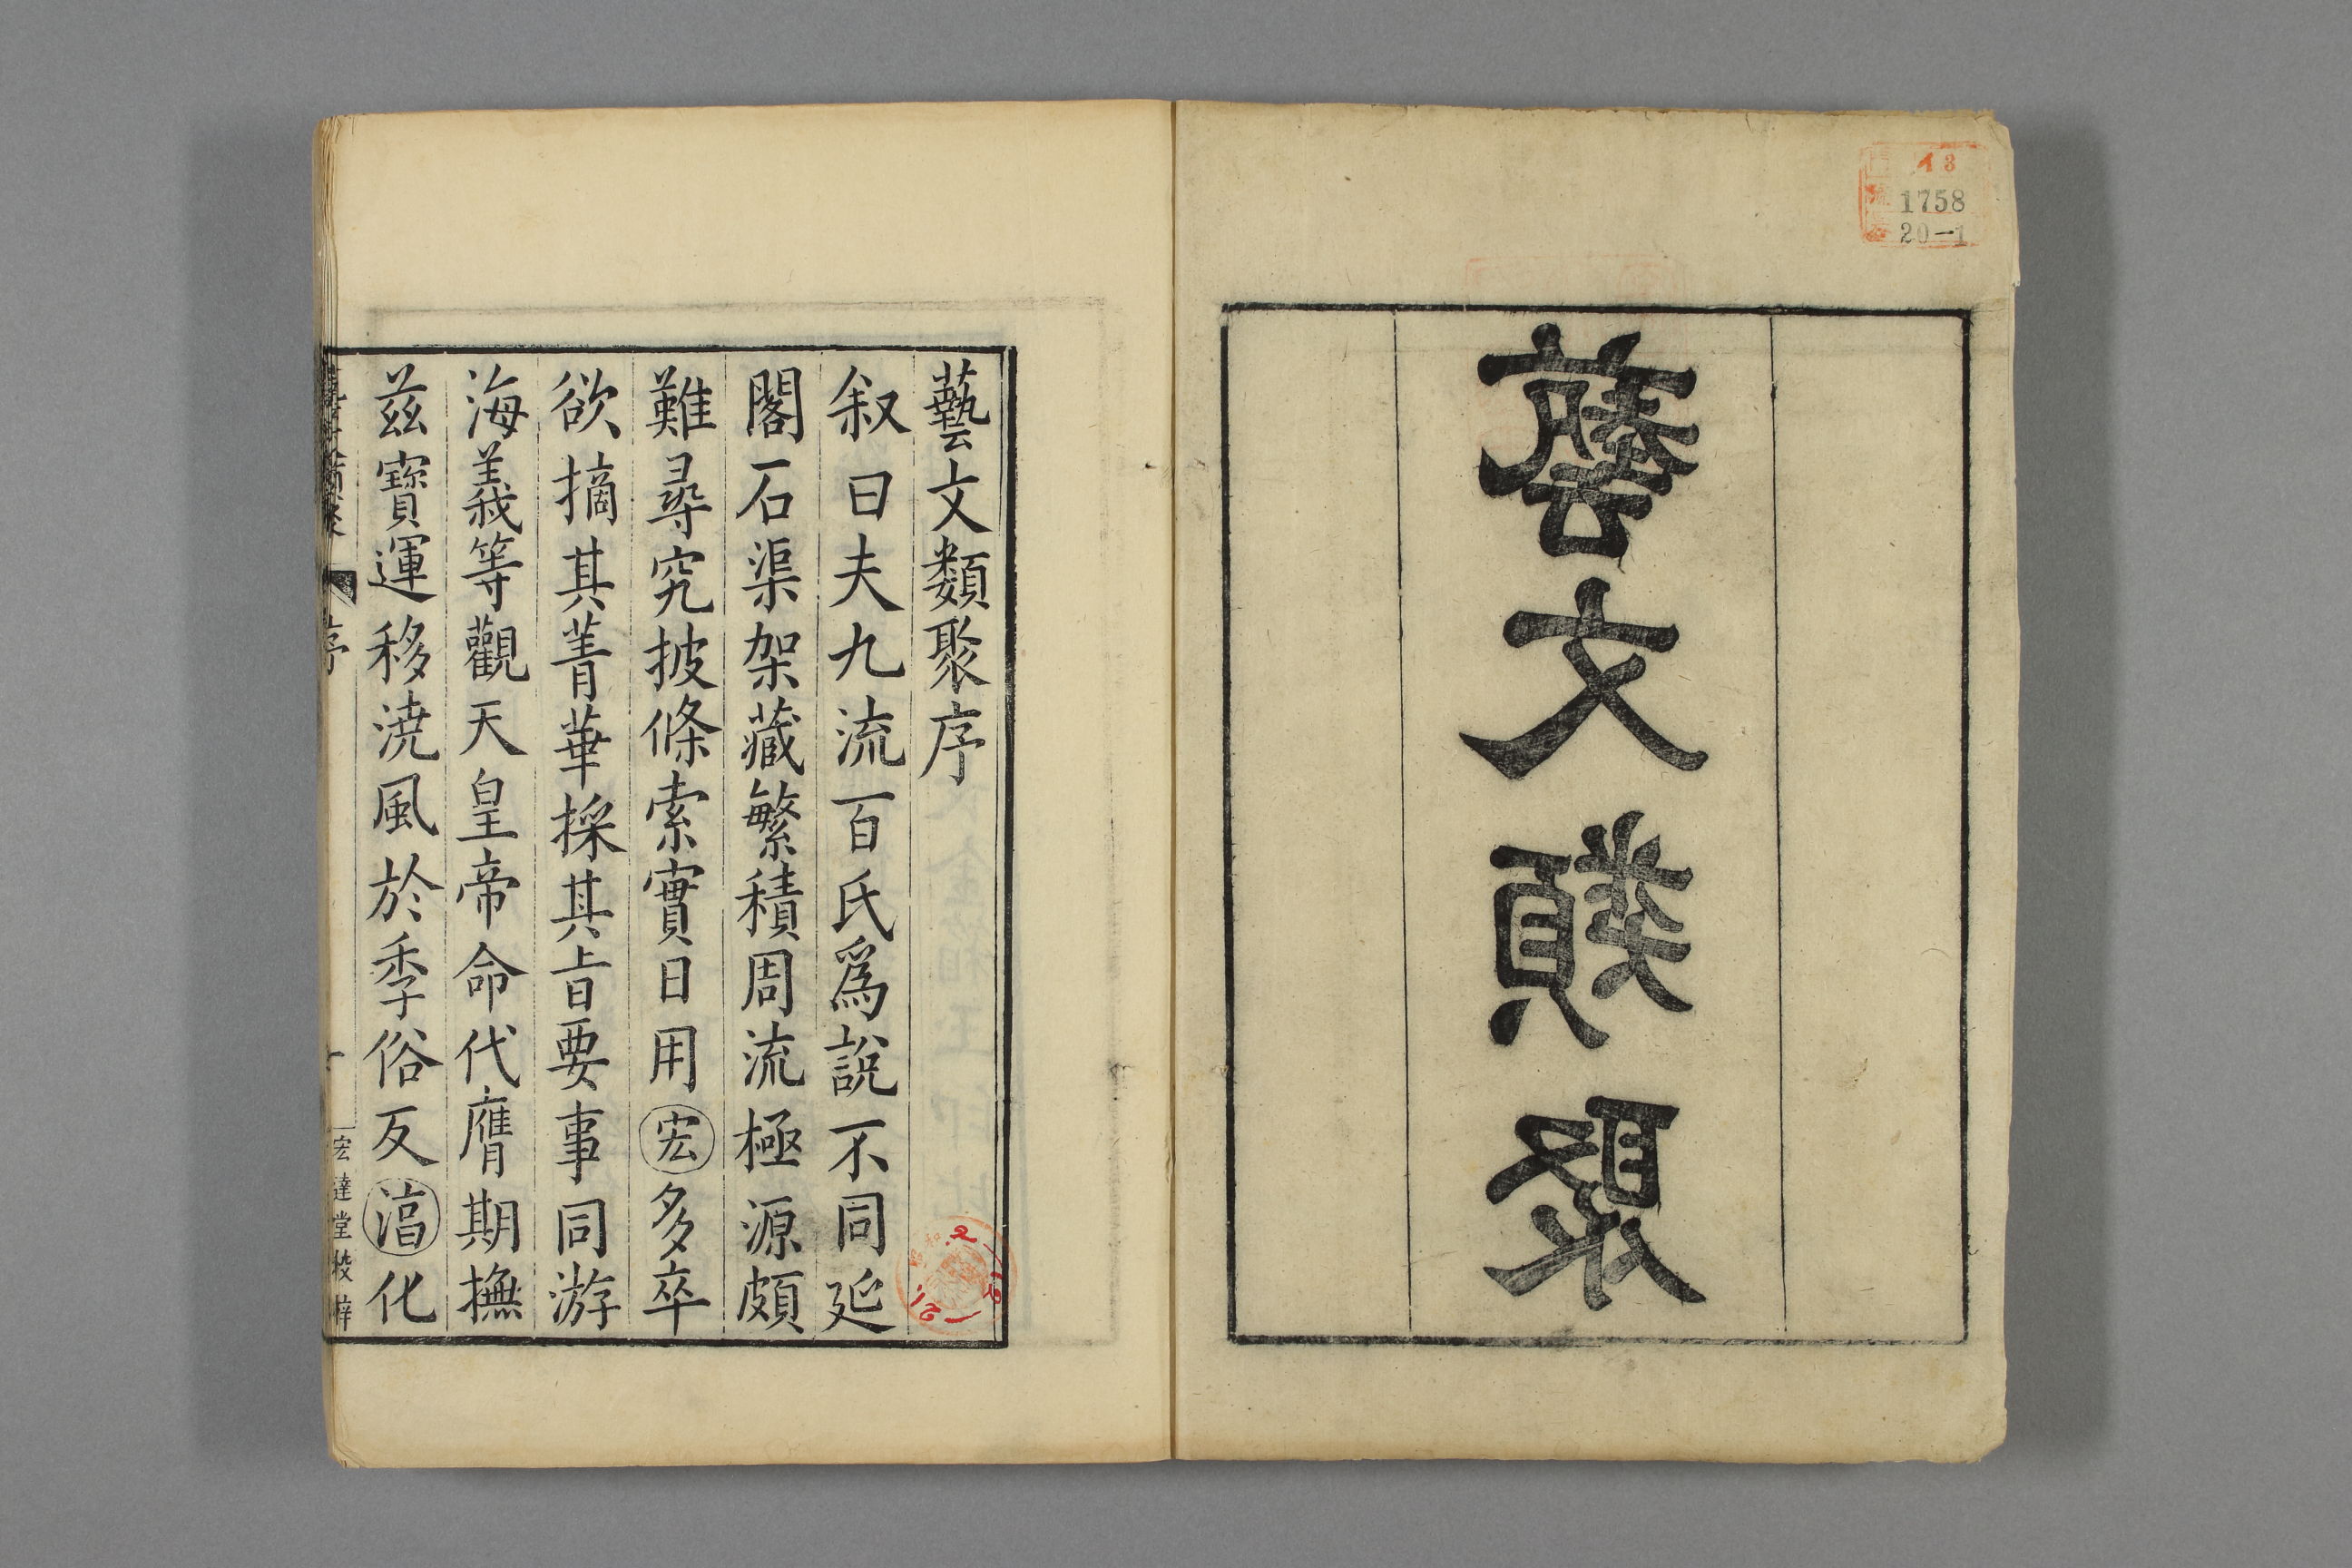 1758
20-1
藝文類聚
藝文類聚序
叙曰夫九流百氏爲說不同延
閣石渠架藏繁積周流極源頗
難尋究披條索實日用宏多卒
欲摘其菁華採其旨要事同游
海義等觀天皇帝命代膺期撫
茲寶運移澆風於季俗反湻化
序
宏達堂校梓